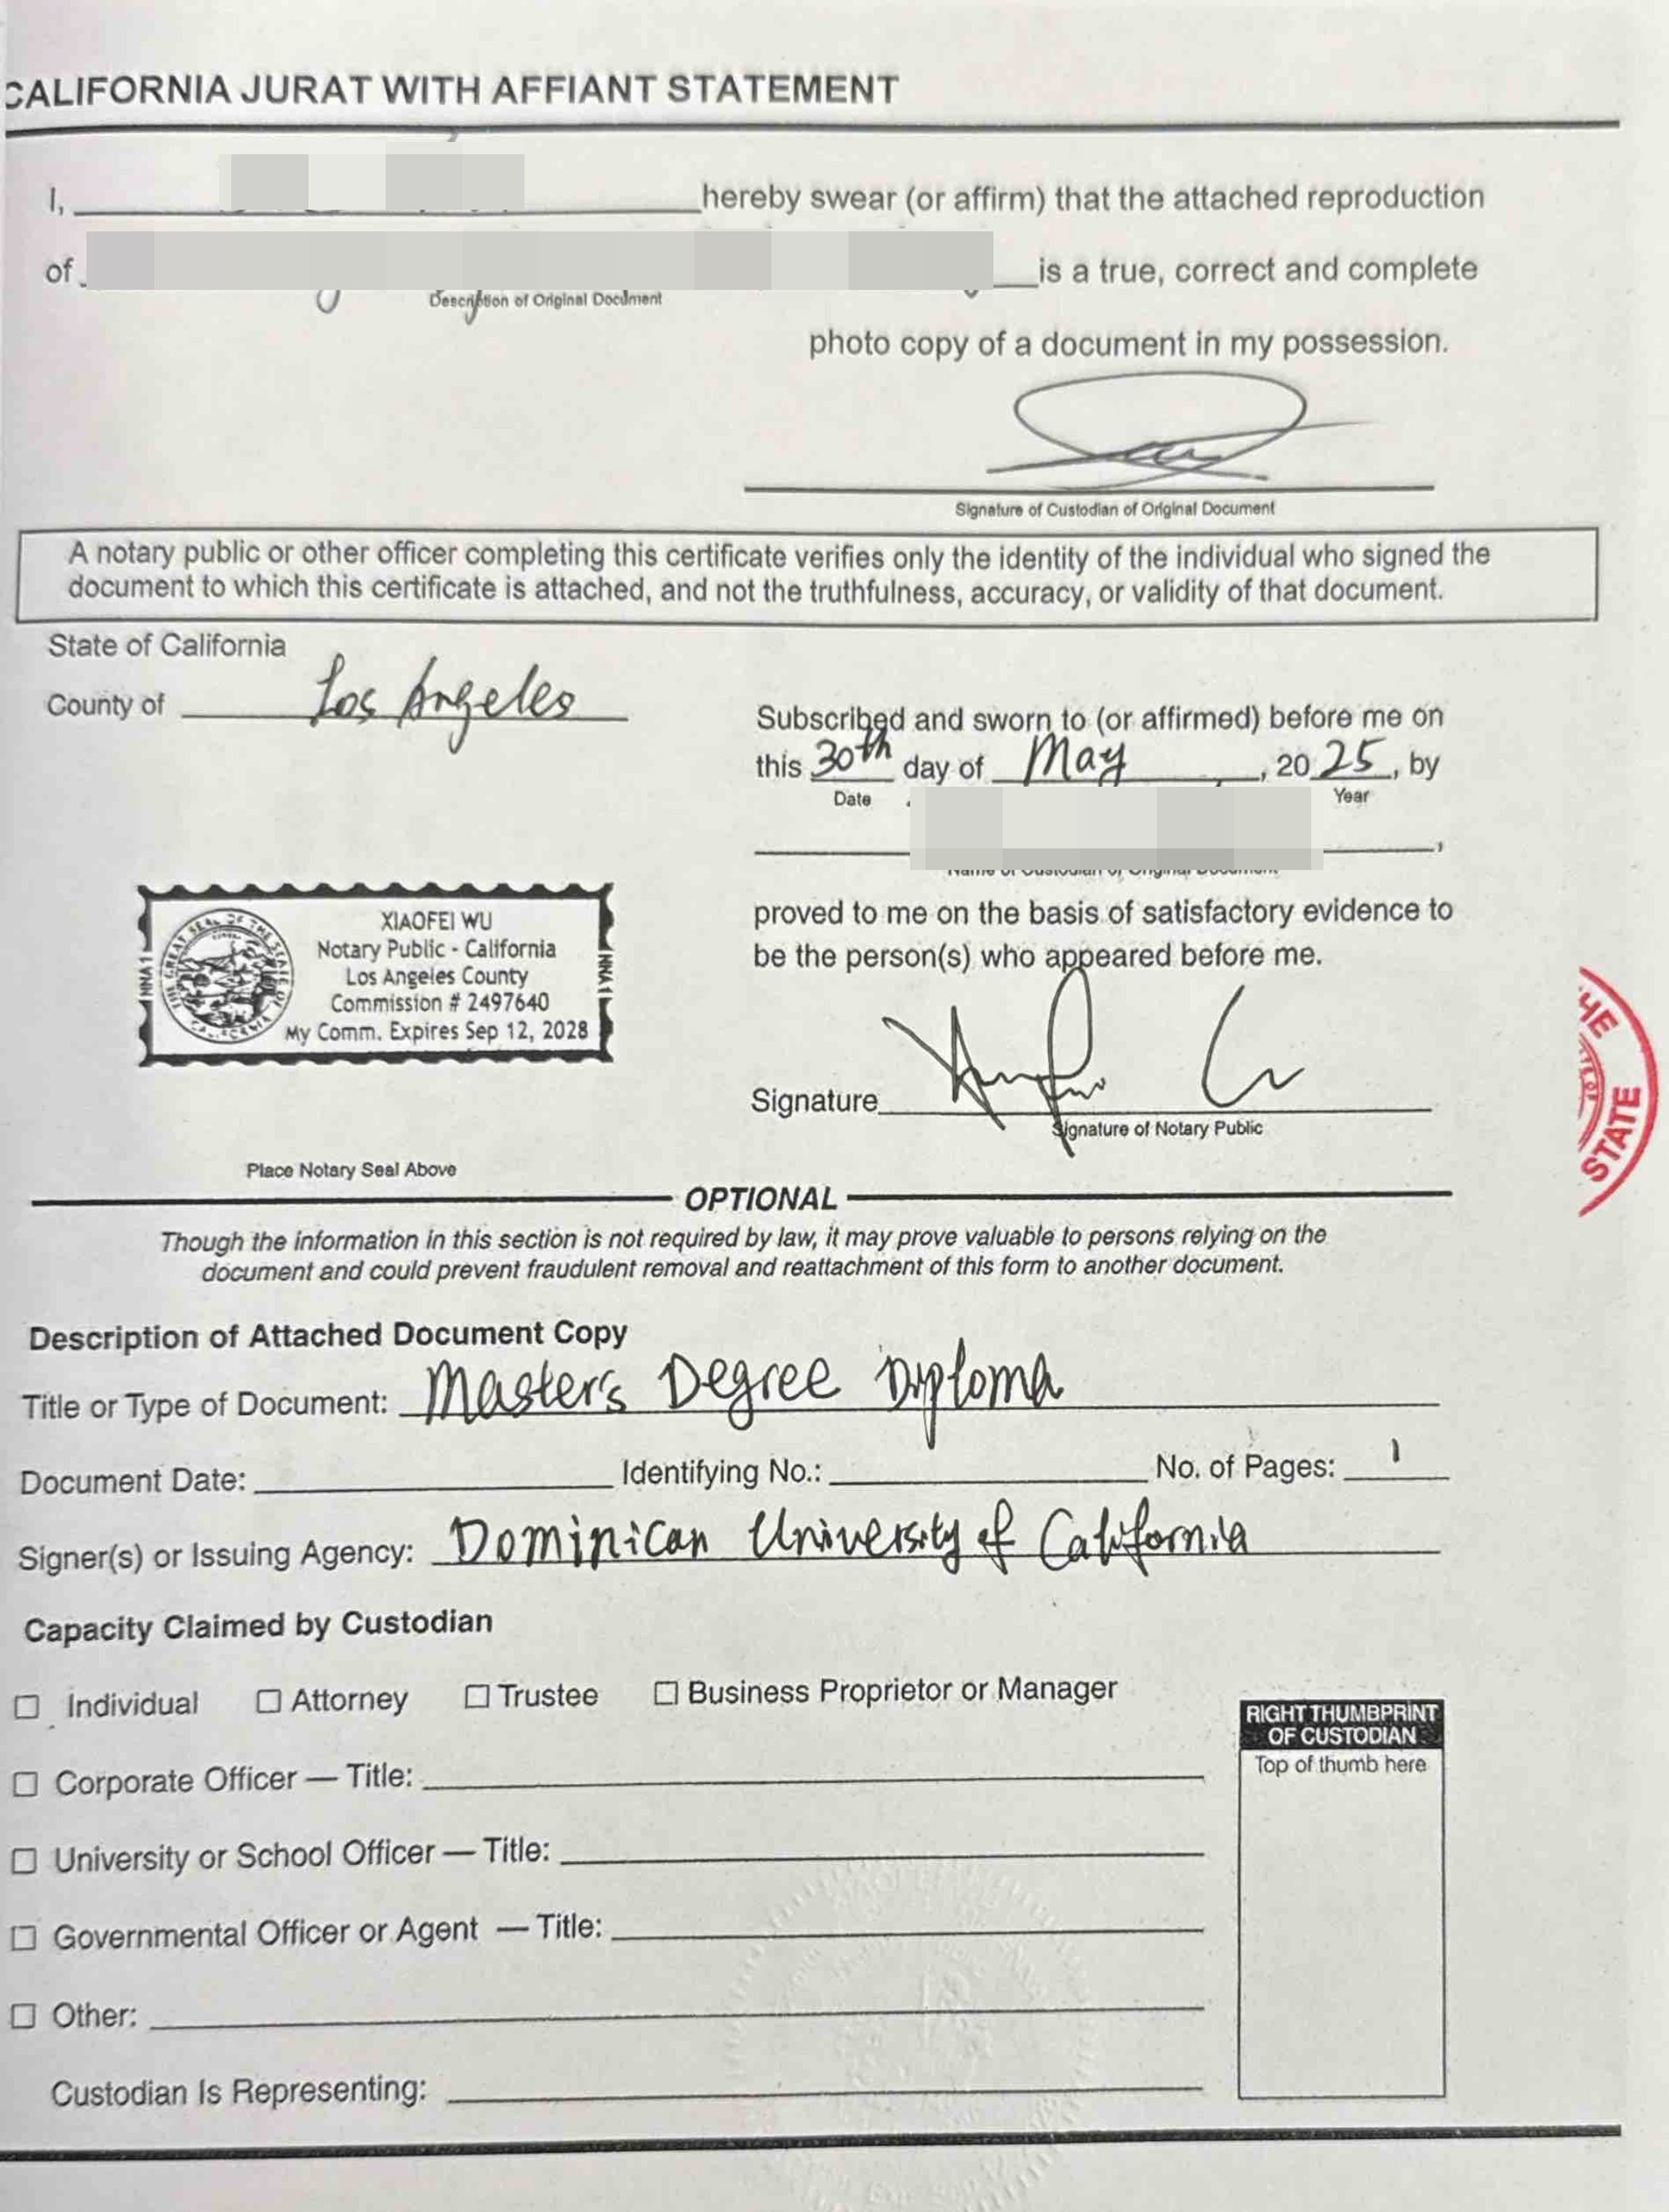 CALIFORNIA JURAT WITH AFFIANT STATEMENT
I, hereby swear (or affirm) that the attached reproduction
of is a true, correct and complete
Description of Original Document
photo copy of a document in my possession.
Signature of Custodian of Original Document
A notary public or other officer completing this certificate verifies only the identity of the individual who signed the
document to which this certificate is attached, and not the truthfulness, accuracy, or validity of that document.
State of California
County of Los Angeles
Subscribed and sworn to (or affirmed) before me on
this 30th day of May, 2025, by
Date Year
Name of Custodian of Original Document
proved to me on the basis of satisfactory evidence to
be the person(s) who appeared before me.
XIAOFEI WU
Notary Public - California
Los Angeles County
Commission # 2497640
My Comm. Expires Sep 12, 2028
NNA1 NNA1
THE GREAT SEAL OF THE STATE OF CALIFORNIA
Signature
Signature of Notary Public
THE
STATE
Place Notary Seal Above
OPTIONAL
Though the information in this section is not required by law, it may prove valuable to persons relying on the
document and could prevent fraudulent removal and reattachment of this form to another document.
Description of Attached Document Copy
Title or Type of Document: Master's Degree Diploma
Document Date: Identifying No.: No. of Pages: 1
Signer(s) or Issuing Agency: Dominican University of California
Capacity Claimed by Custodian
☐ Individual ☐ Attorney ☐ Trustee ☐ Business Proprietor or Manager
☐ Corporate Officer — Title:
☐ University or School Officer — Title:
☐ Governmental Officer or Agent — Title:
☐ Other:
Custodian Is Representing:
RIGHT THUMBPRINT
OF CUSTODIAN
Top of thumb here